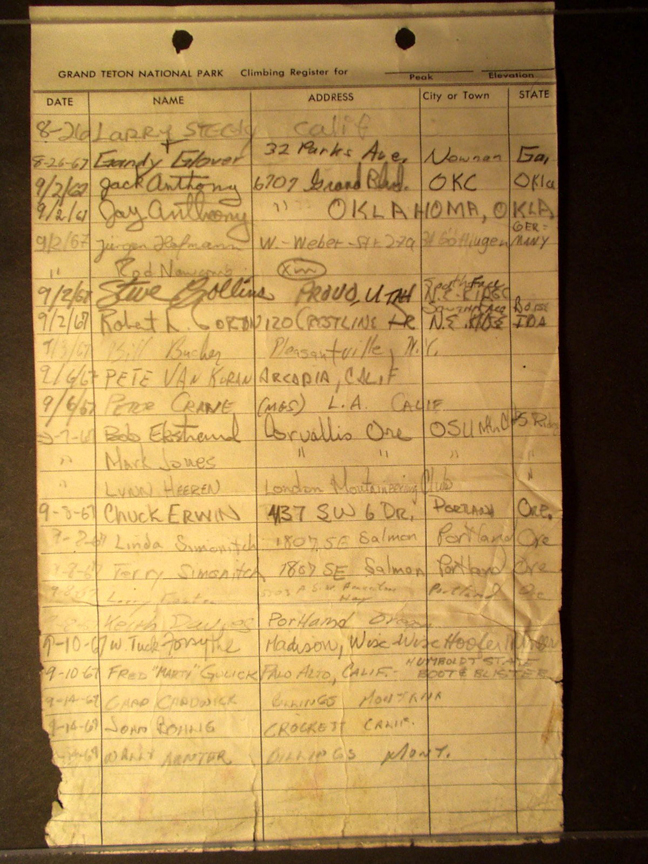 GRAND TETON NATIONAL PARK Climbing Register for
Peak Elevation
DATE NAME ADDRESS City or Town STATE
8-26 LARRY Calif
8-26-67 Gandy Glover 32 Parks Ave. Newnan Ga.
9/2/67 Jack Anthony 6707 Grand Blvd. OKC Okla
9/2/67 Jay Anthony " " OKLAHOMA, OKLA
9/2/67 Jürgen Hofmann W.-Weber-Str 27a 34 Göttingen GER-MANY
" Rod
9/2/67 Steve Collins PROVO, UTAH N.E. RIDGE
9/2/67 Robert L. 120 DR N.E. RIDGE BOISE IDA
9/3/67 Bill Bucher Pleasantville, N.Y.
9/6/67 PETE VAN ARCADIA, CALIF
9/6/67 PETE CRANE L.A. CALIF
9-7-67 Bob Ekstrand Corvallis Ore OSU
" Mark Jones " " " "
" LYNN HEEREN London Mountaineering Club "
9-8-67 Chuck ERWIN 4137 SW 6 DR. PORTLAND ORE.
9-8-67 Linda Simonitch 1807 SE Salmon Portland Ore
9-8-67 Terry Simonitch 1807 SE Salmon Portland Ore
Larry Hwy Portland Ore
Keith Davies Portland Oregon
9-10-67 W Tuck Forsythe Madison, Wisc Wisc Hoofer
9-10-67 FRED "MARTY" GULICK PALO ALTO, CALIF.- HUMBOLDT STATE BOOT & BLISTER
9-14-67 CHAD CHADWICK BILLINGS MONTANA
9-14-67 JOHN CROCKETT CALIF.
BILLINGS MONT.